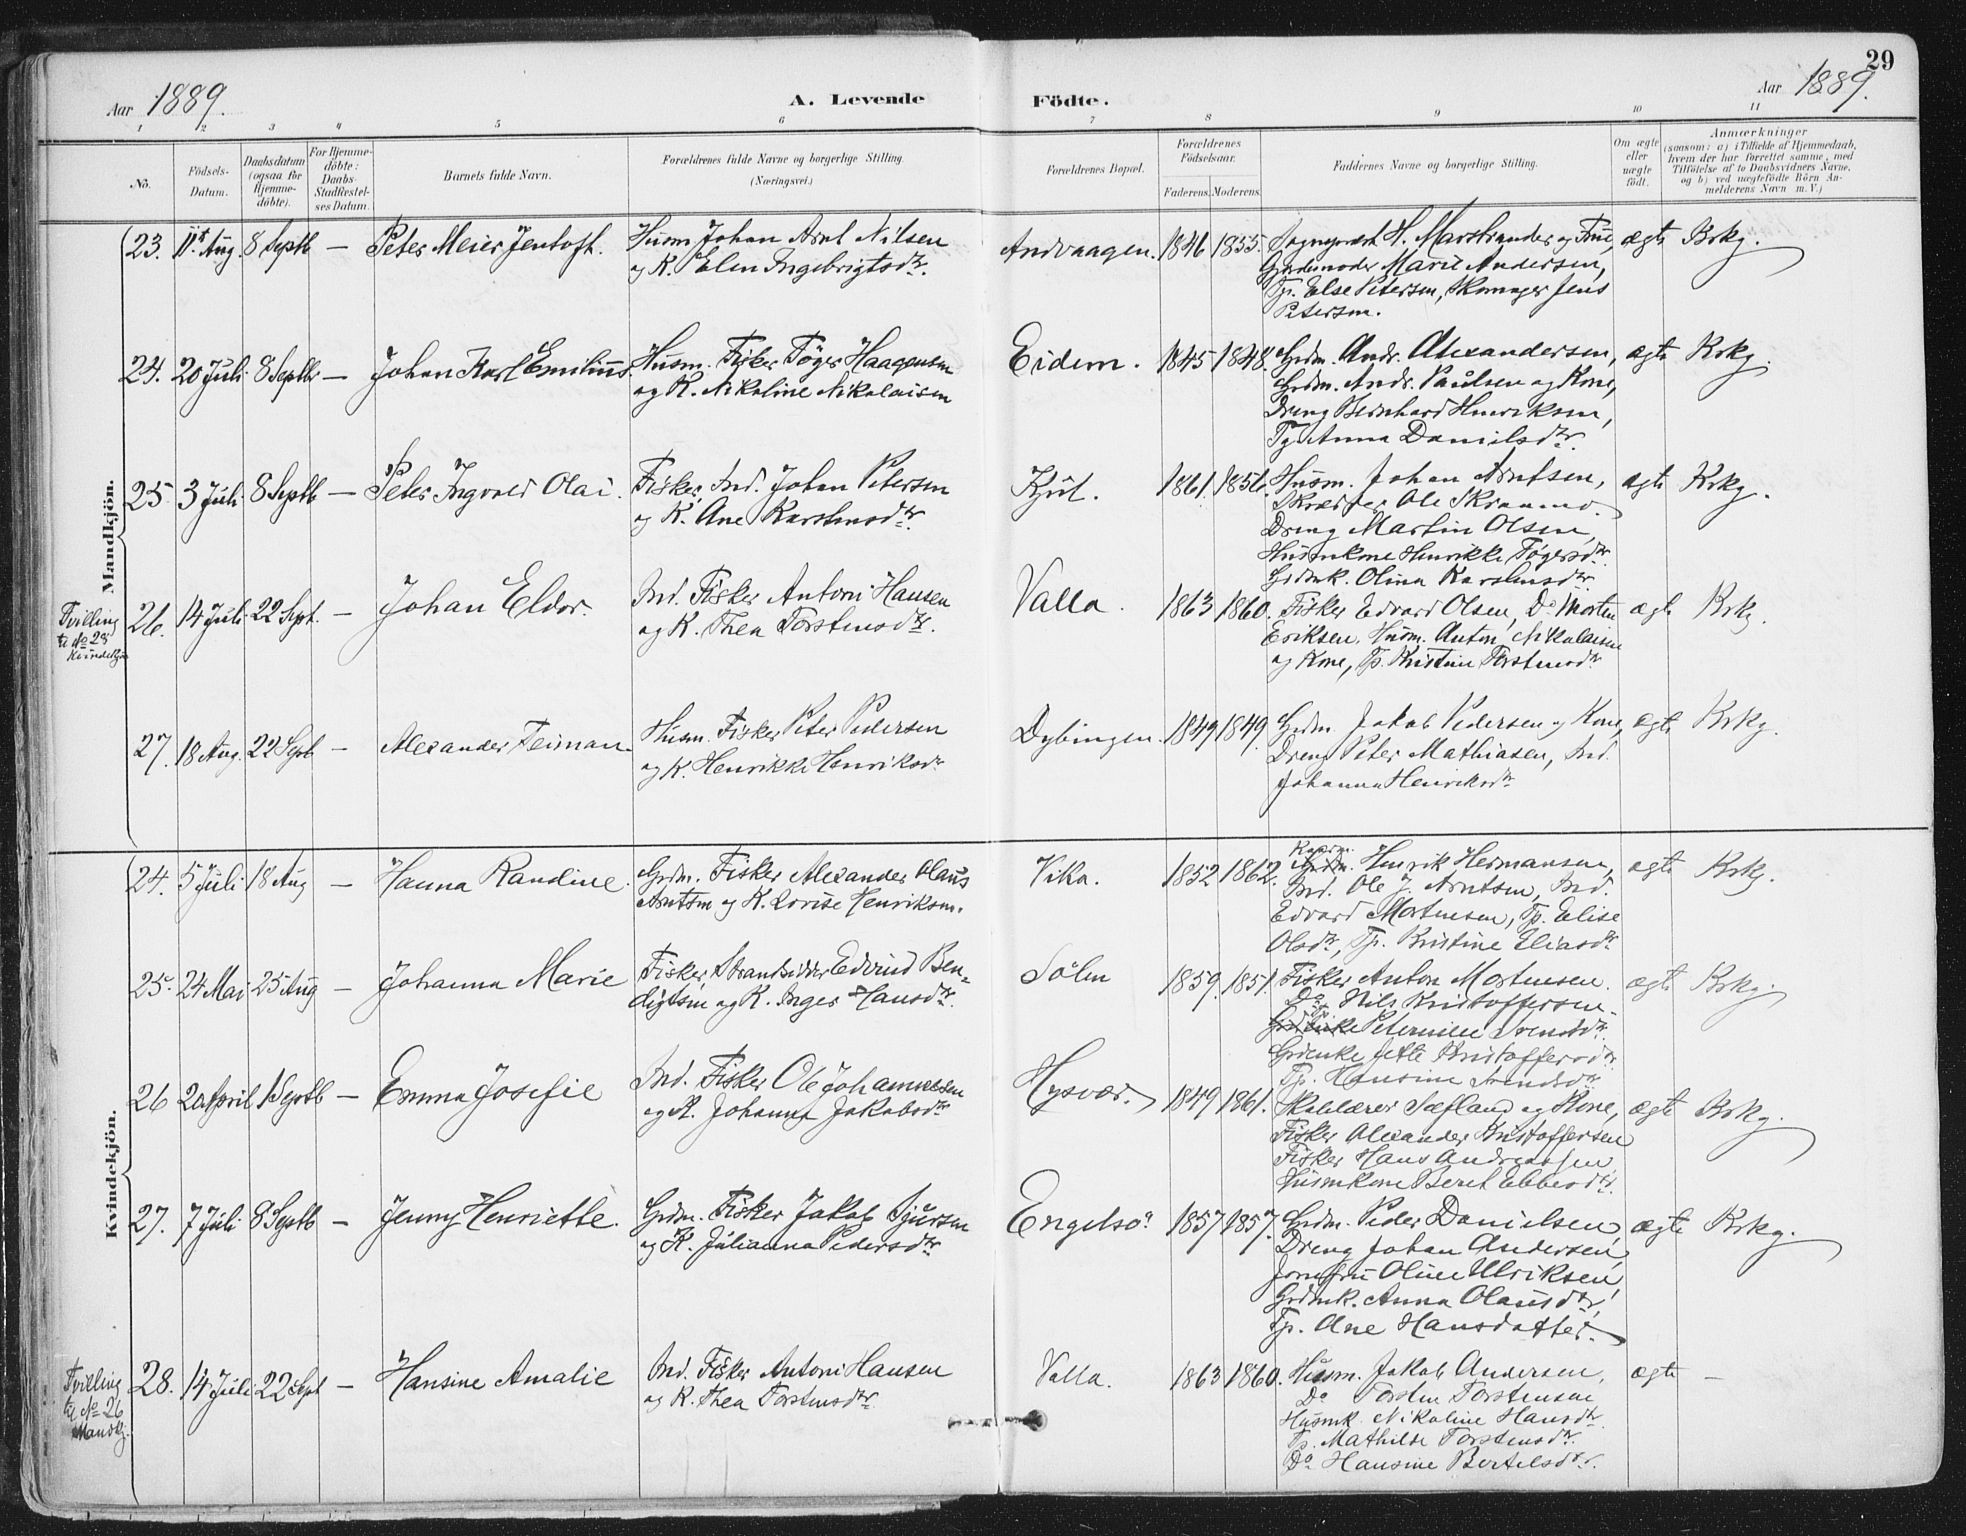 29
Aar 1889.
A. Levende
Födte.
Aar 1889.
1 2 3 4 5 6 7 8 9 10 11
No.
Födsels-Datum.
Daabsdatum (ogsaa for Hjemme-döbte).
For Hjemme-döbte: Daabs-Stadfæstel-ses Datum.
Barnets fulde Navn.
Forældrenes fulde Navne og borgerlige Stilling.
(Næringsvei.)
Forældrenes Bopæl.
Forældrenes Födselsaar.
Faderens. Moderens.
Faddernes Navne og borgerlige Stilling.
Om ægte eller uægte födt.
Anmærkninger
(saasom: a) i Tilfælde af Hjemmedaab,
hvem der har forrettet samme, med
Tilföielse af to Daabsvidners Navne,
og b) ved uægtefödte Börn An-
melderens Navn m. V.)
Mandkjön.
23. 11te Aug. 8 Septb — Peter Meier Jentoft. Husm Johan Arnt Nilsen
og K. Elen Ingebrigtsdtr.
Andvaagen. 1846 1855. Sognepræst H. Marstrander og Frue,
Gardemoder Marie Andersen,
Tp. Else Petersen, Skomager Jens
Petersen.
ægte Krkg.
24. 20 Juli 8 Septbr — Johan Karl Emilius. Husm. Fisker Tøger Haagensen
og K. Nikoline Nikolaisen
Eidem. 1845 1848. Grdm. Andr. Alexandersen,
Grdm. Andr. Paulsen og Kone,
Dreng Bernhard Henriksen,
Tp. Anna Danielsdtr.
ægte Krkg.
25. 3 Juli 8 Septb — Peter Ingvald Olai. Fisker, Ind. Johan Petersen
og K. Ane Karstensdtr.
Kjul. 1861. 1856. Husm. Johan Arntsen,
Skrædder Ole
Dreng Martin Olsen,
Husmkone Henrikke Tøgersdtr.
Grdmk. Olina Karstensdtr
ægte Krkg.
Tvilling
til No 28
Kvindekjøn
26. 14 Juli 22 Sept. — Johan Eldor. Ind. Fisker Antoni Hansen
og K. Thea Torstensdtr.
Valla. 1863 1860. Fisker Edvard Olsen, Do Morten
Eriksen, Husm. Anton Nikolaisen
og Kone, Tp. Kristine Torstensdtr
ægte Krkg.
27. 18 Aug. 22 Sept — Alexander Feiman. Husm. Fisker Peter Pedersen
og K. Henrikke Henriksdr
Dybingen. 1849 1849. Grdm. Jakob Pedersen og Kone,
Dreng Peter Mathiasen, Ind.
Johanna Henriksdtr.
ægte Krkg.
Kvindekjön.
24. 5 Juli 18 Aug — Hanna Randine. Grdm. Fisker Alexander Olaus
Arntsen og K. Lovise Henriksen.
Vika. 1852 1862. Henrik Hermansen,
Ind. Ole J. Arntsen, Ind.
Edvard Mortensen, Tp. Elise
Olsdtr, Tp. Kristine Eliasdtr
ægte Krkg.
25. 24 Mai 25 Aug — Johanna Marie Fisker, Strandsidder Edvind Ben-
digtsen og K. Inger Hansdtr.
Sölen 1859. 1851. Fisker Anton Mortensen.
Do Nils Kristoffersen.
Tp. Petermine Svendsdtr.
Grdenke Jette Kristoffersdtr
Tp. Hansine Svendsdtr
ægte Krkg.
26 20 April 1 Septb — Emma Josefie Ind. Fisker Ole Johannesen
og K. Johanna Jakobsdtr
Hysvær. 1849 1861. Skolelærer Sæfland og Kone,
Fisker Alexander Kristoffersen
Fisker Hans Andreassen
Husmkone Beret Ebbesdtr.
ægte Krkg.
27. 7 Juli 8 Septb — Jenny Henriette. Grdm. Fisker Jakob Sjursen
og K. Julianna Pedersdtr
Engelsö. 1857 1857. Grdm. Peder Danielsen,
Dreng Johan Andersen,
Jomfru Oline Ulriksen,
Grdmk. Anna Olausdtr,
Tp. Ane Hansdatter.
ægte Krkg.
Tvilling
til No 26
Mandkj.
28. 14 Juli 22 Sept — Hansine Amalie Ind. Fisker Antoni Hansen
og K. Thea Torstensdtr.
Valla. 1863 1860. Husm. Jakob Andersen,
Do Torsten Torstensen
Husmk. Nikoline Hansdtr.
Tp. Mathilde Torstensdtr.
Do Hansine Bertelsdtr.
ægte —